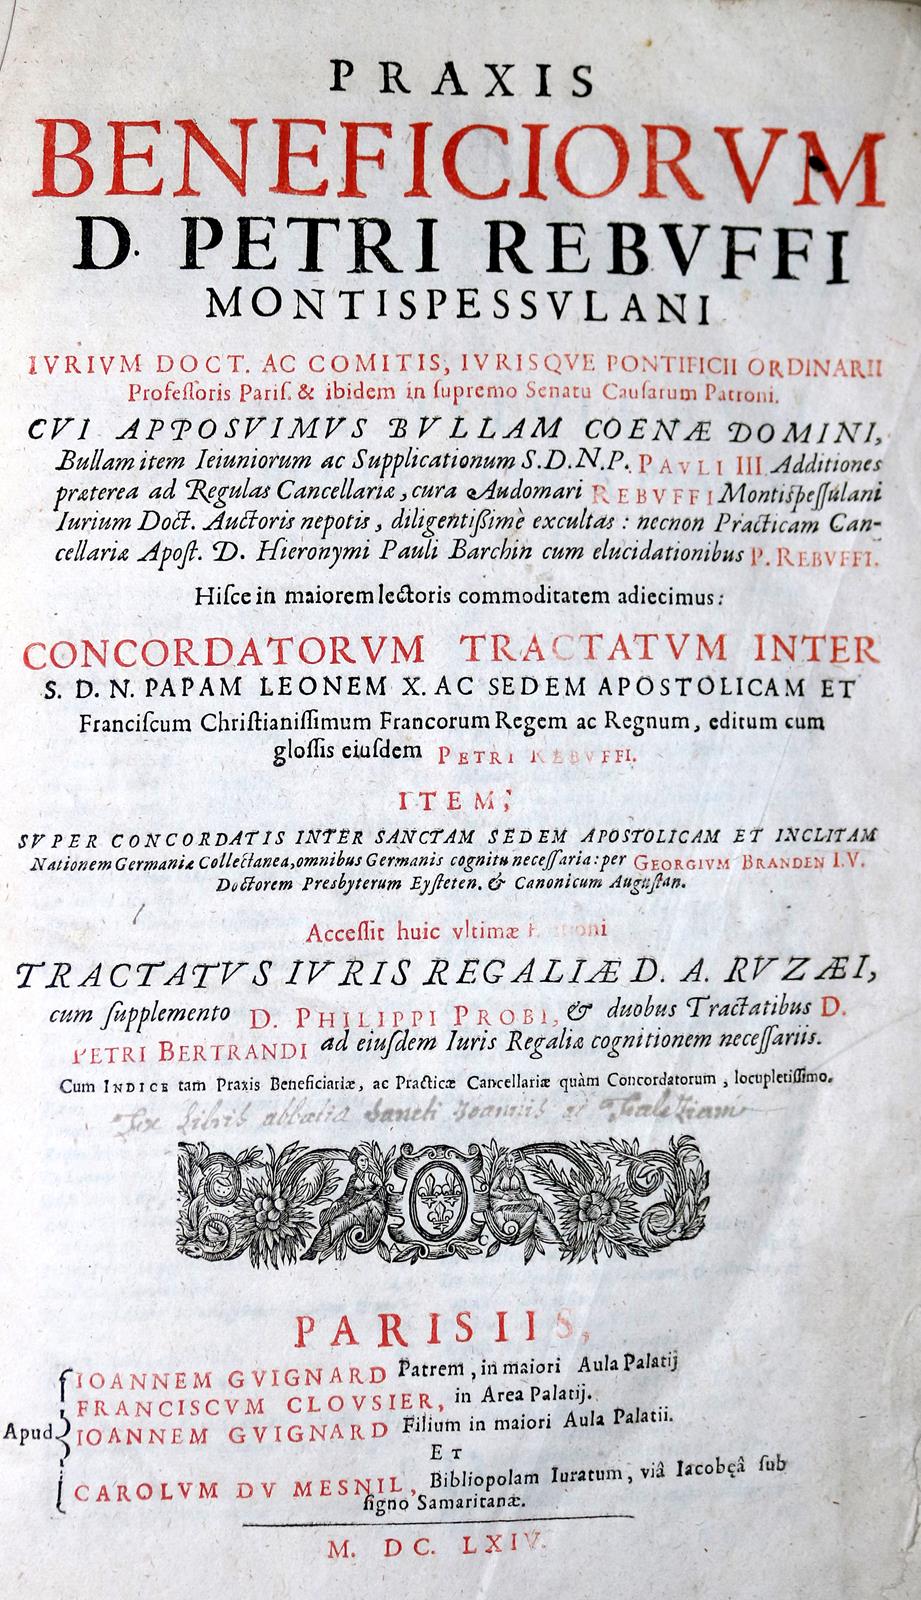 PRAXIS
BENEFICIORVM
D. PETRI REBVFFI
MONTISPESSVLANI
IVRIVM DOCT. AC COMITIS, IVRISQVE PONTIFICII ORDINARII
Profeſſoris Pariſ. & ibidem in ſupremo Senatu Cauſarum Patroni.
CVI APPOSVIMVS BVLLAM COENÆ DOMINI,
Bullam item Ieiuniorum ac Supplicationum S.D.N.P. PAVLI III. Additiones
præterea ad Regulas Cancellariæ, cura Audomari REBVFFI Montiſpeſſulani
Iurium Doct. Auctoris nepotis, diligentiſſimè excultas : necnon Practicam Can-
cellariæ Apoſt. D. Hieronymi Pauli Barchin cum elucidationibus P. REBVFFI.
Hiſce in maiorem lectoris commoditatem adiecimus :
CONCORDATORVM TRACTATVM INTER
S. D. N. PAPAM LEONEM X. AC SEDEM APOSTOLICAM ET
Franciſcum Chriſtianiſſimum Francorum Regem ac Regnum, editum cum
gloſſis eiuſdem PETRI REBVFFI.
ITEM,
SVPER CONCORDATIS INTER SANCTAM SEDEM APOSTOLICAM ET INCLITAM
Nationem Germaniæ Collectanea, omnibus Germanis cognitu neceſſaria : per GEORGIVM BRANDEN I.V.
Doctorem Presbyterum Eyſteten. & Canonicum Auguſtan.
Acceſſit huic vltimæ
TRACTATVS IVRIS REGALIÆ D. A. RVZÆI,
cum ſupplemento D. PHILIPPI PROBI, & duobus Tractatibus D.
PETRI BERTRANDI ad eiuſdem Iuris Regaliæ cognitionem neceſſariis.
Cum INDICE tam Praxis Beneficiariæ, ac Practicæ Cancellariæ quàm Concordatorum, locupletiſſimo.
Ex Libris abbatia Sancti Joannis
PARISIIS,
Apud
IOANNEM GVIGNARD Patrem, in maiori Aula Palatij
FRANCISCVM CLOVSIER, in Area Palatij.
IOANNEM GVIGNARD Filium in maiori Aula Palatii.
ET
CAROLVM DV MESNIL, Bibliopolam Iuratum, viâ Iacobęâ ſub
ſigno Samaritanæ.
M. DC. LXIV.